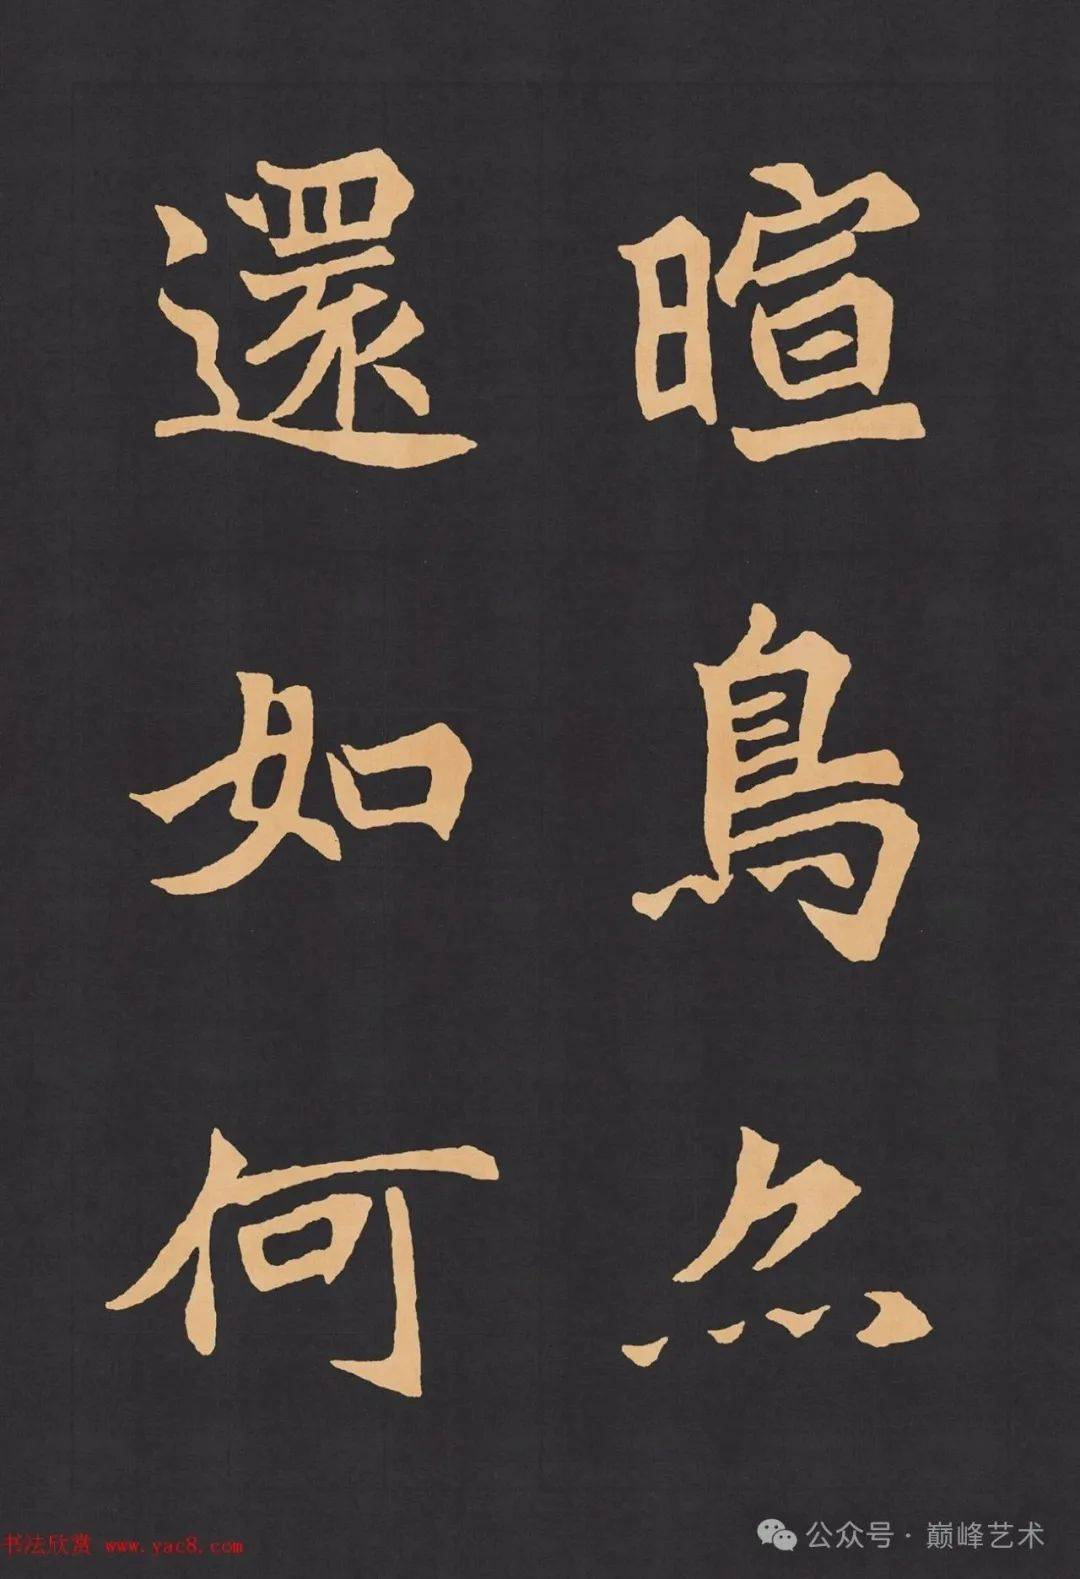 暄鳥
還如何
书法欣赏 www.yac8.com
公众号·巅峰艺术